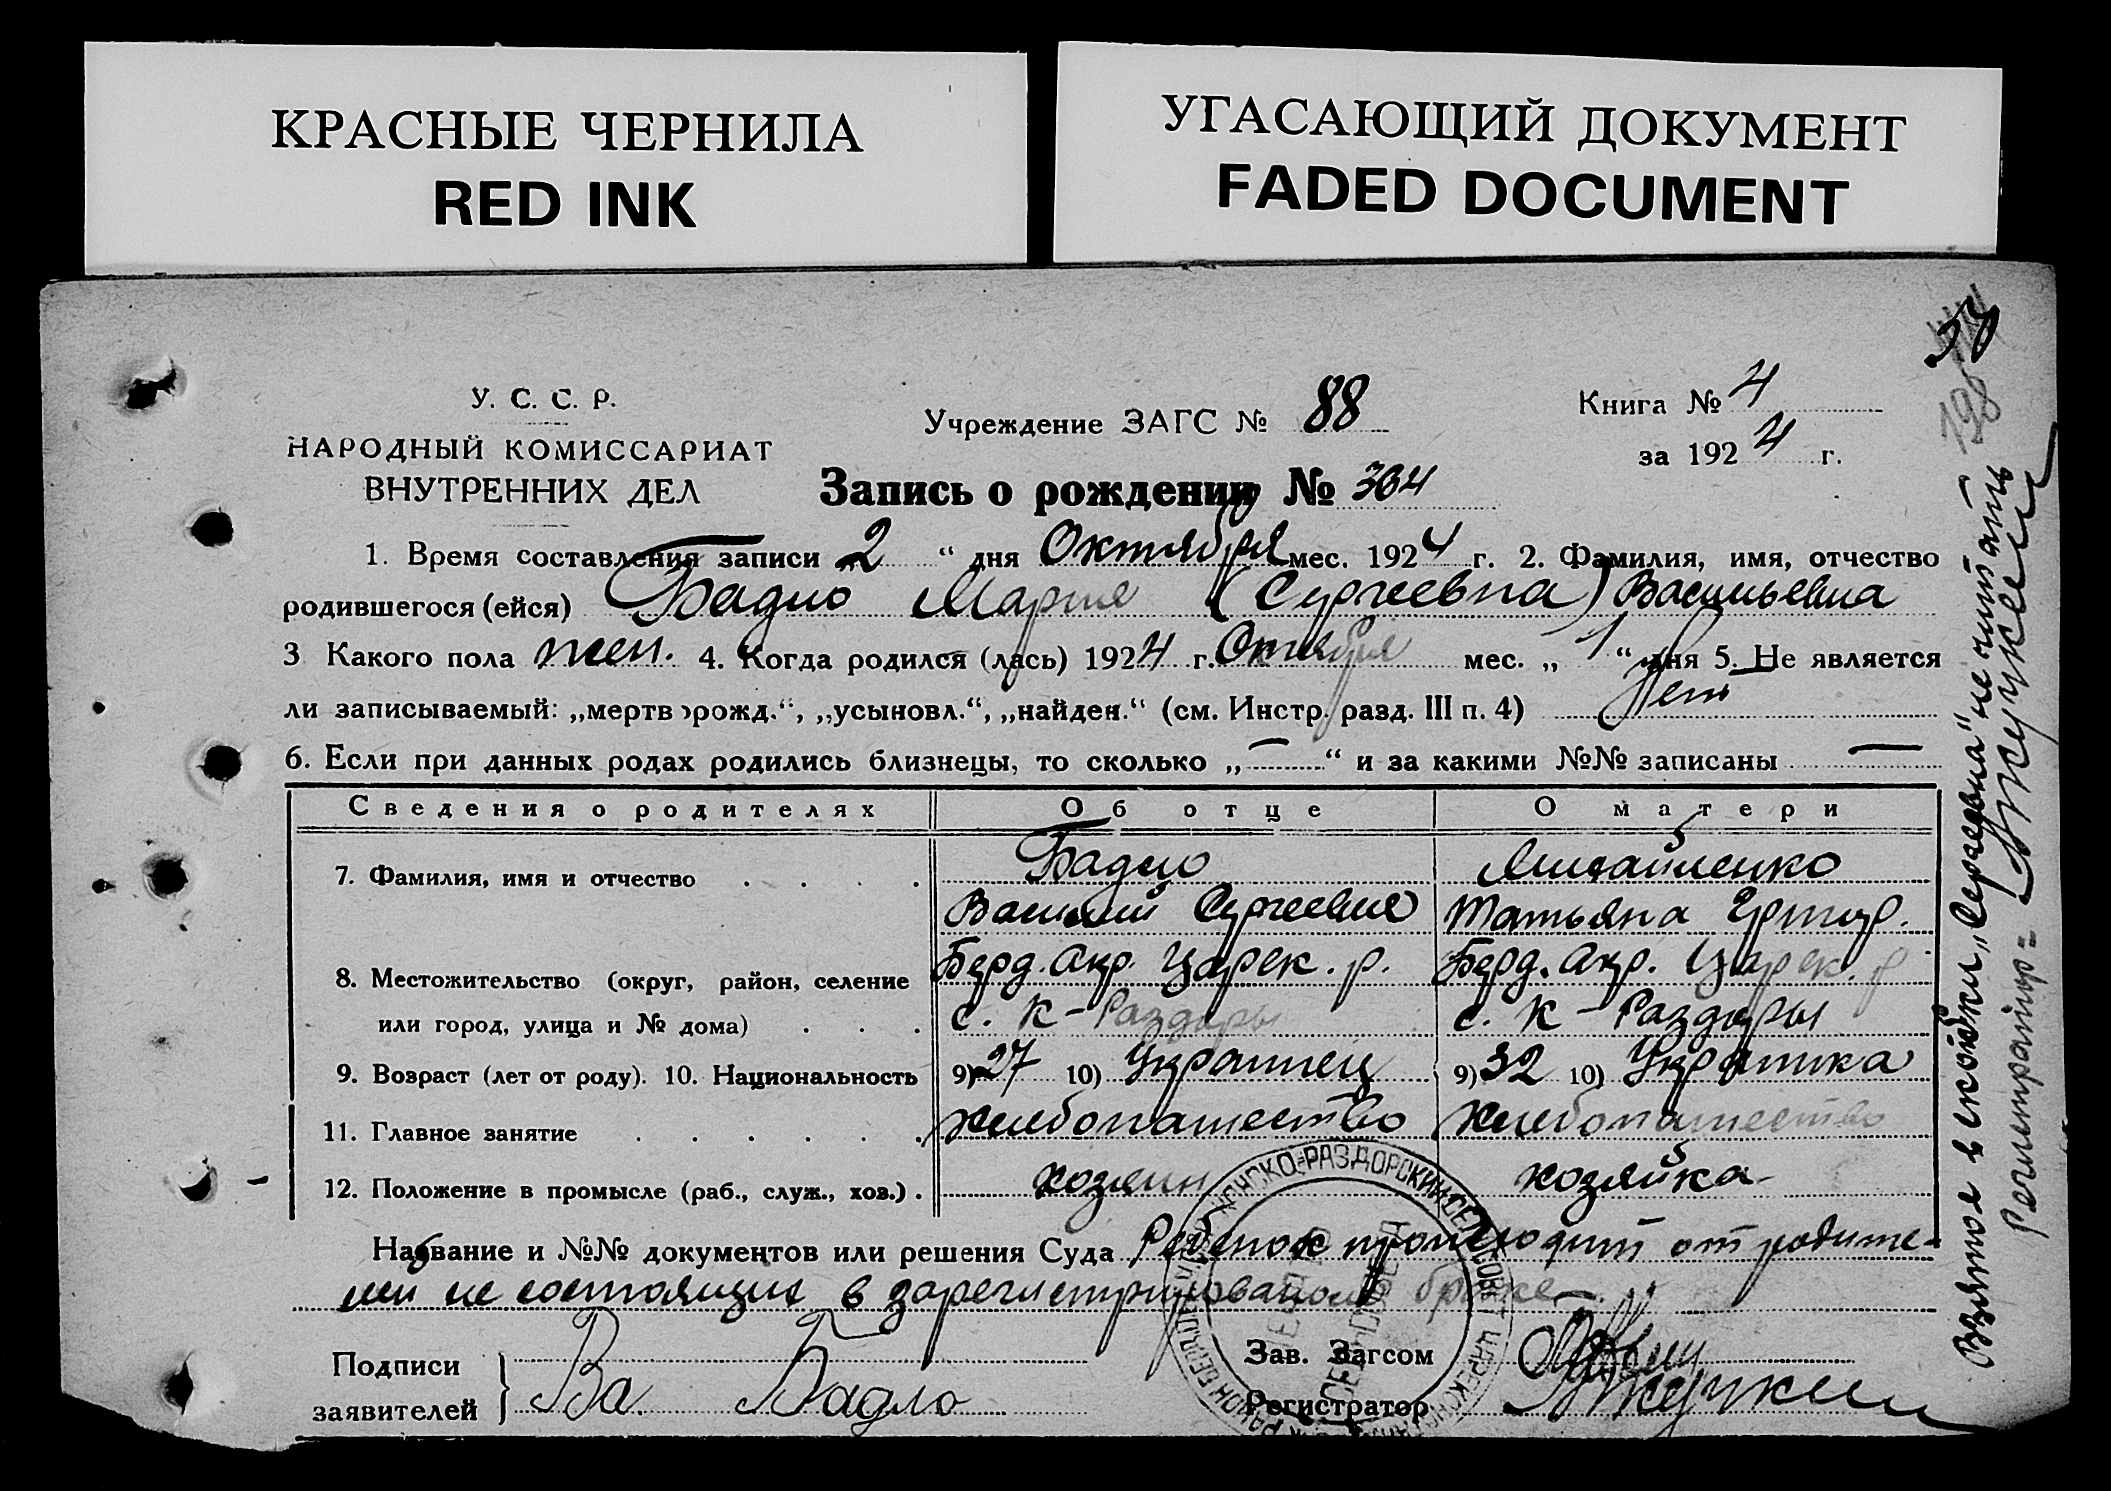 КРАСНЫЕ ЧЕРНИЛА
RED INK
УГАСАЮЩИЙ ДОКУМЕНТ
FADED DOCUMENT
38
198
У. С. С. Р.
НАРОДНЫЙ КОМИССАРИАТ
ВНУТРЕННИХ ДЕЛ
Учреждение ЗАГС № 88
Книга № 4
за 1924 г.
Запись о рождении № 364
1. Время составления записи 2 “ дня Октября мес. 1924 г. 2. Фамилия, имя, отчество
родившегося (ейся) Бадло Мария (Сергеевна) Васильевна
3 Какого пола жен. 4. Когда родился (лась) 1924 г. Октября мес. „ 1 “ дня 5. Не является
ли записываемый: „мертворожд.“, „усыновл.“, „найден.“ (см. Инстр. разд. III п. 4) Нет
6. Если при данных родах родились близнецы, то сколько „ — “ и за какими №№ записаны —
Сведения о родителях Об отце О матери
7. Фамилия, имя и отчество Бадло Михайленко
Василий Сергеевич Татьяна Григор.
8. Местожительство (округ, район, селение Берд. окр. Царек. р. Берд. окр. Царек. р
или город, улица и № дома) с. К-Раздоры с. К-Раздоры
9. Возраст (лет от роду). 10. Национальность 9) 27 10) Украинец 9) 32 10) Украинка
11. Главное занятие Хлебопашество Хлебопашество
12. Положение в промысле (раб., служ., хоз.). хозяин хозяйка
Название и №№ документов или решения Суда Ребенок происходит от родите-
лей не состоящих в зарегистрированом браке.
Подписи
заявителей } Ва. Бадло
Зав. Загсом
Регистратор
Взятое в скобки „Сергеевна“ не читать
Регистратор: